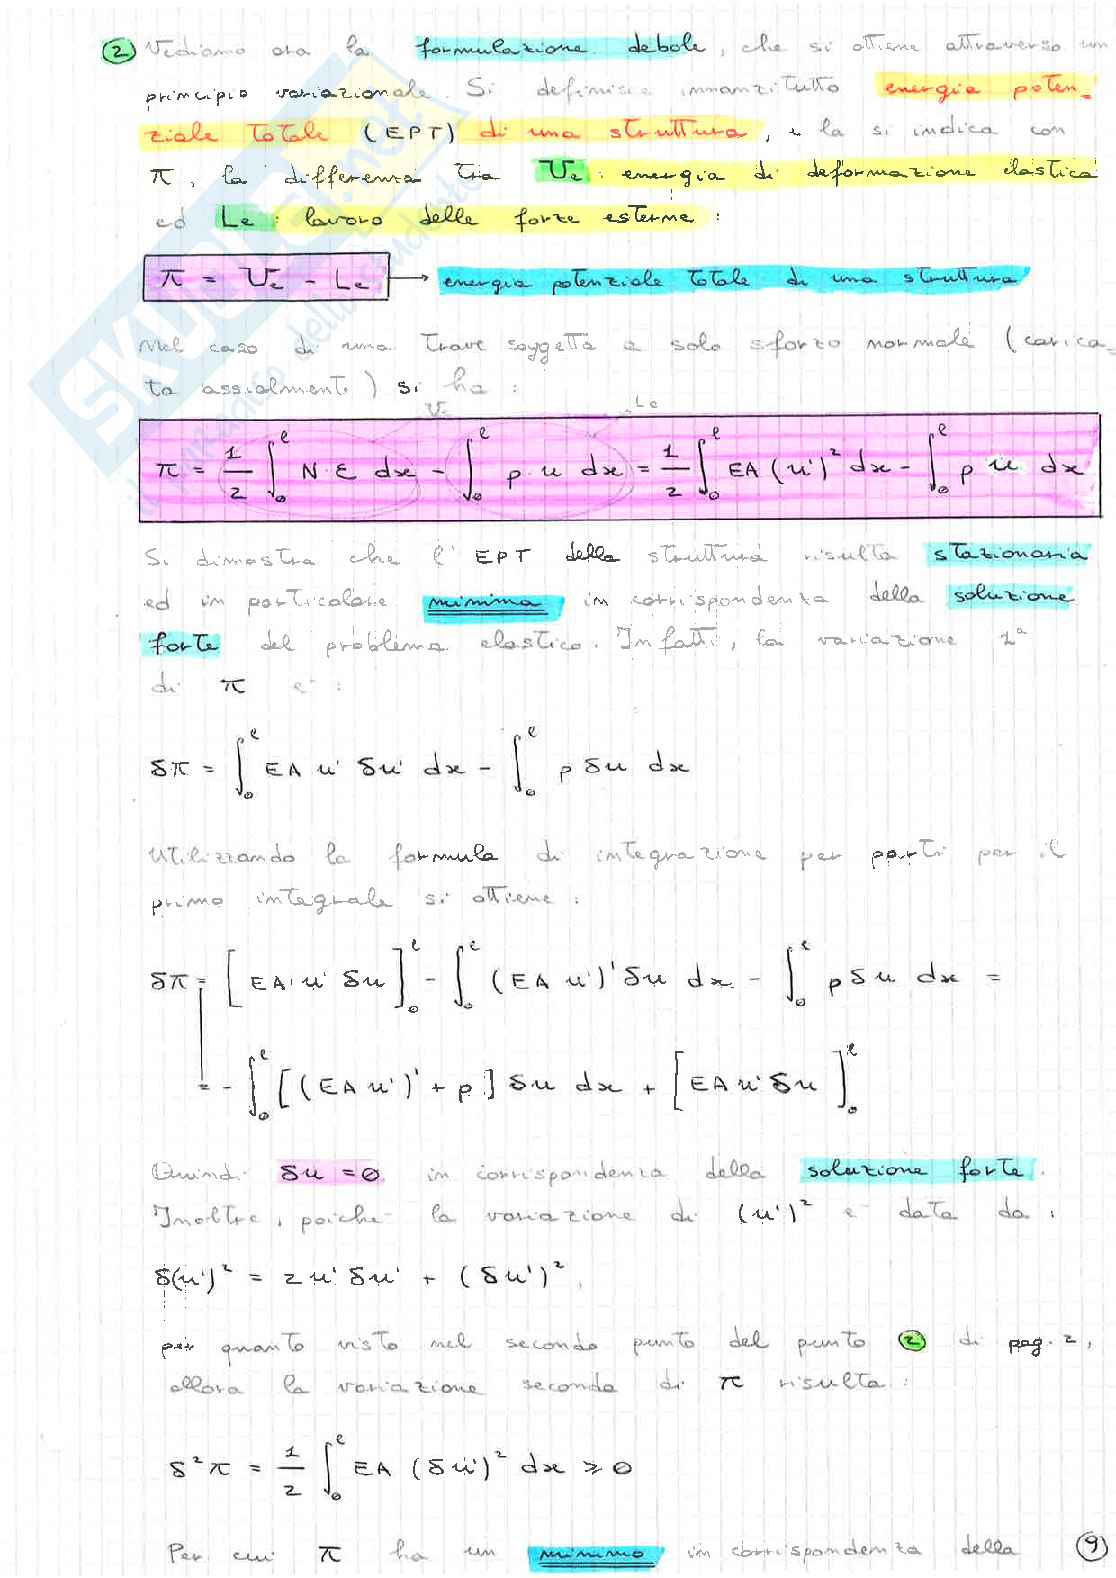 ② Vediamo ora la formulazione debole, che si ottiene attraverso un
principio variazionale. Si definisce innanzitutto energia poten-
ziale totale (EPT) di una struttura, e la si indica con
π, la differenza tra Ue: energia di deformazione elastica
ed Le: lavoro delle forze esterne:
π = Ue - Le → energia potenziale totale di una struttura
Nel caso di una trave soggetta a solo sforzo normale (carica-
ta assialmente) si ha:
Ue Le
π = 1/2 ∫₀ˡ N·ε dx - ∫₀ˡ p·u dx = 1/2 ∫₀ˡ EA (u')² dx - ∫₀ˡ p u dx
Si dimostra che l'EPT della struttura risulta stazionaria
ed in particolare minima in corrispondenza della soluzione
forte del problema elastico. Infatti, la variazione 1ª
di π e':
δπ = ∫₀ˡ EA u' δu' dx - ∫₀ˡ p δu dx
Utilizzando la formula di integrazione per parti per il
primo integrale si ottiene:
δπ = [EA·u' δu]₀ˡ - ∫₀ˡ (EA u')' δu dx - ∫₀ˡ p δu dx =
= - ∫₀ˡ [(EA u')' + p] δu dx + [EA u' δu]₀ˡ
Quindi δu = 0 in corrispondenza della soluzione forte.
Inoltre, poiche' la variazione di (u')² e' data da:
δ(u')² = 2u' δu' + (δu')²,
per quanto visto nel secondo punto del punto ② di pag. 2,
allora la variazione seconda di π risulta:
δ²π = 1/2 ∫₀ˡ EA (δu')² dx ≥ 0
Per cui π ha un minimo in corrispondenza della ⑨